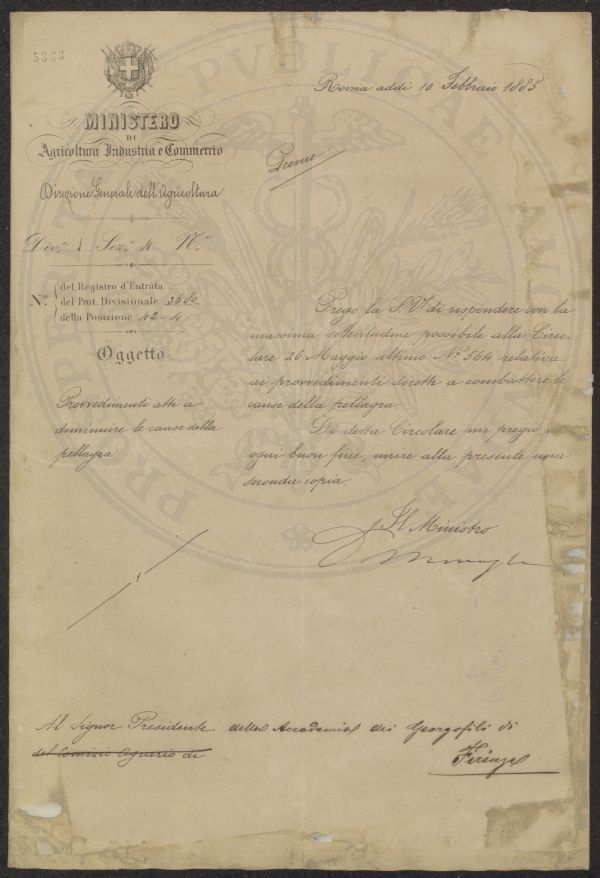 5363
Roma addì 10 Febbraio 1885
MINISTERO
DI
Agricoltura Industria e Commercio
Direzione Generale dell'Agricoltura
Preme
Divⁿᵉ 1 Sezⁿᵉ 4 N.°
N.° del Registro d'Entrata
del Prot. Divisionale 3680
della Posizione 42-4
Oggetto
Provvedimenti atti a
diminuire le cause della
pellagra
Prego la S.V. di rispondere con la
massima sollecitudine possibile alla Circo-
lare 26 Maggio ultimo N° 564 relativa
ai provvedimenti diretti a combattere le
cause della pellagra.
Di detta Circolare mi pregio ad
ogni buon fine, unire alla presente una
seconda copia.
Il Ministro
Al Signor Presidente della Accademia dei Georgofili di
del Comizio Agrario di
Firenze